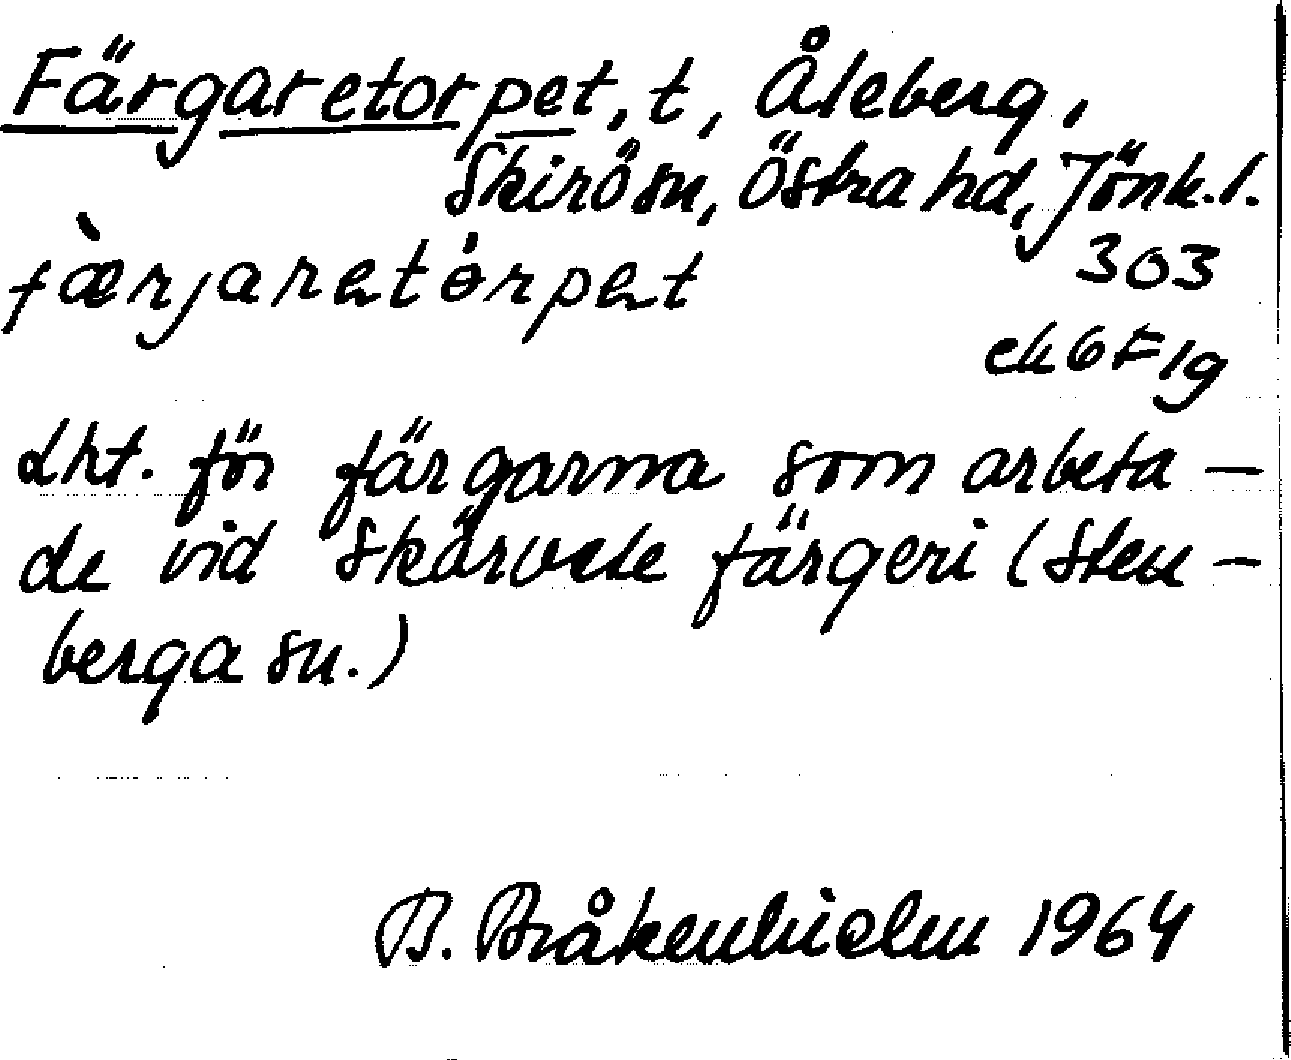 Färgaretorpet, t, Åleberg,
Skirö sn, Östra hd, Jönk.l.
fæ̀rjaretȯrpet
303
ek 6 F 1g
Lht. för färgarna som arbeta-
de vid Skärvete färgeri (Sten-
berga sn.)
B. Bråkenhielm 1964